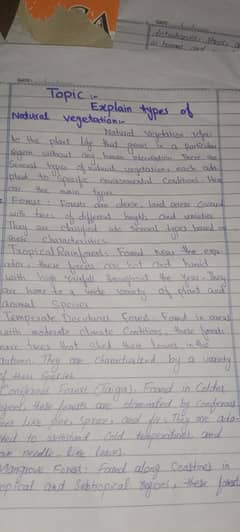 DATE:
Topic :-
Explain types of
Natural vegetation:-
Natural vegetation refers
to the plant life that grows in a particular
region without any human intervention. There are
several types of natural vegetations each ada
pted to specific environmental conditions. Here
are the main types
Forest: Forests are dense land areas covered
with trees of different heights and varieties
They are classified into several types based on
their characteristics
Tropical Rainforests: Found near the equ
ator, these forests are hot and humid
with high rainfall throughout the year. They
are home to a wide variety of plant and
animal species
Temperate Deciduous Forest: Found in areas
with moderate climate conditions, these forests
have trees that shed their leaves in the
autumn. They are characterized by a variety
of tree species
Coniferous Forest (Taiga): Found in colder
these forests are dominated by coniferous
like pine, spruce and fir. They are adap
ted to withstand cold temperatures and
needle-like leaves.
Mangrove Forest: Found along coastlines in
tropical and subtropical regions, these forests